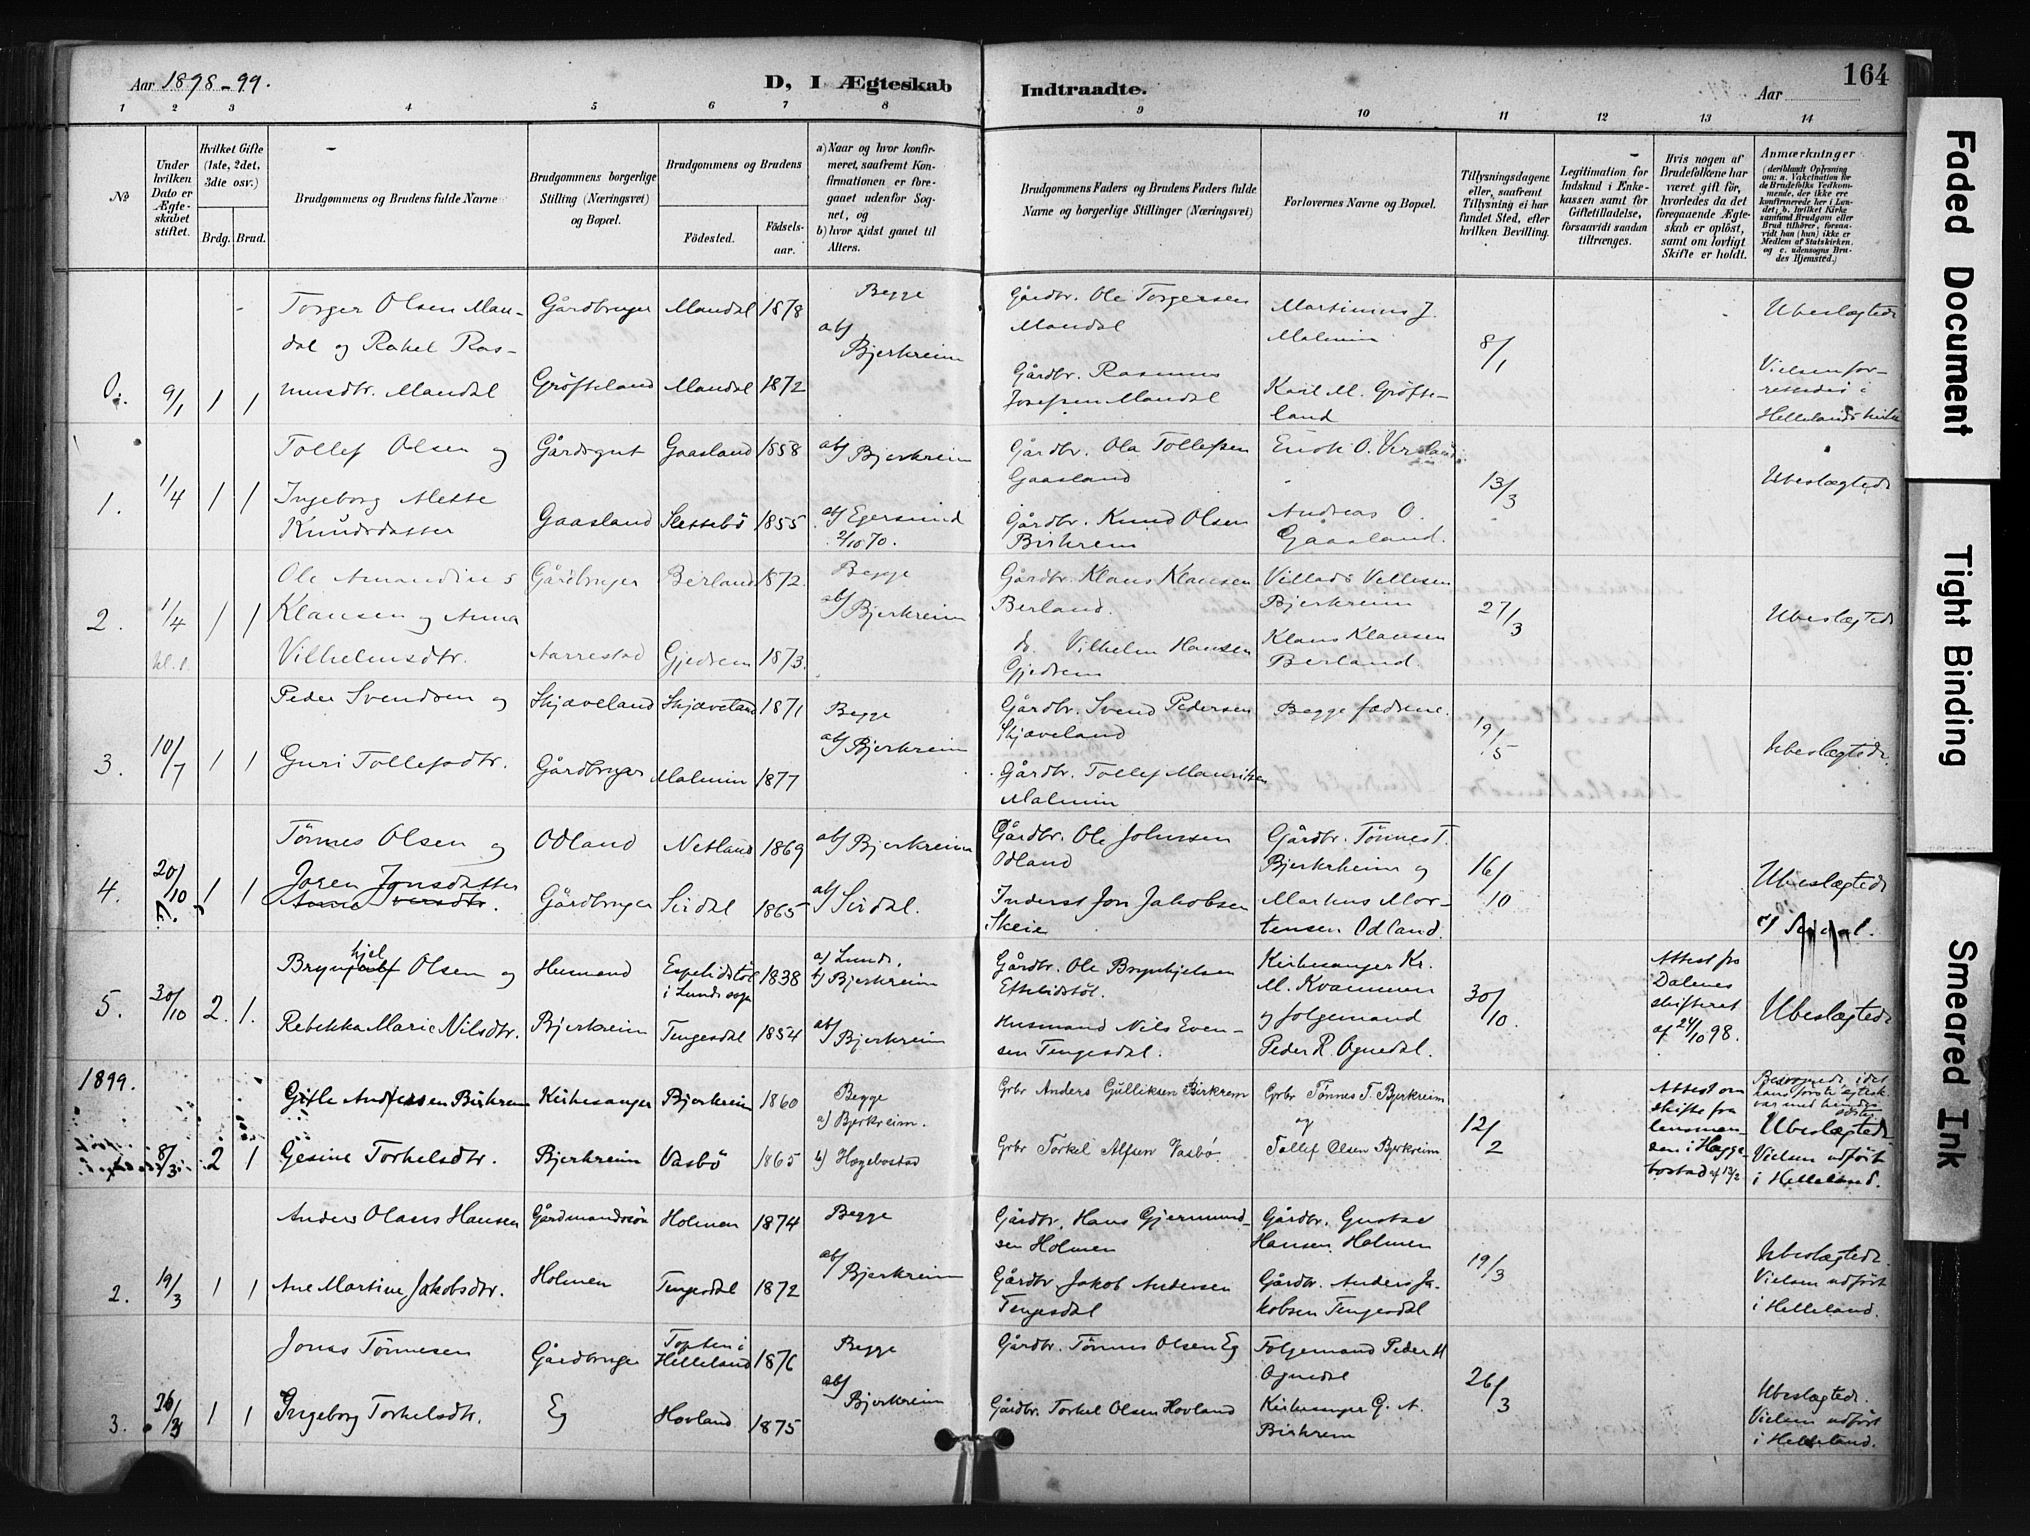 Aar 1898-99.
D, I Ægteskab Indtraadte.
Aar
164
1 2 3 4 5 6 7 8 9 10 11 12 13 14
№
Under hvilken Dato er Ægteskabet stiftet.
Hvilket Gifte (1ste, 2det, 3die osv.)
Brdg. Brud.
Brudgommens og Brudens fulde Navne
Brudgommens borgerlige Stilling (Næringsvei) og Bopæl.
Brudgommens og Brudens
Fødested.
Fødselsaar.
a) Naar og hvor konfirmeret, saafremt Konfirmationen er foregaaet udenfor Sognet, og
b) hvor sidst gaaet til Alters.
Brudgommens Faders og Brudens Faders fulde Navne og borgerlige Stillinger (Næringsvei)
Forlovernes Navne og Bopæl.
Tillysningsdagene eller, saafremt Tillysning ei har fundet Sted, efter hvilken Bevilling.
Legitimation for Indskud i Enkekassen samt for Giftetilladelse, forsaavidt saadan tiltrænges.
Hvis nogen af Brudefolkene har været gift før, hvorledes da det foregaaende Ægteskab er opløst, samt om lovligt Skifte er holdt.
Anmærkninger
(deriblandt Oplysning om: a. Vakcination for de Brudefolks Vedkommende, der ikke ere konfirmerede her i Landet; b. hvilket Kirkesamfund Brudgom eller Brud tilhører, forsaavidt han (hun) ikke er Medlem af Statskirken. og c. udensogns Brudes Hjemsted.)
0. 9/1 1 1
Torger Olsen Man-
dal og Rakel Ras-
musdtr. Mandal
Gårdbruger
Grøfteland
Mandal 1878
Mandal 1872
Begge
ab/ Bjerkreim
Gårdbr. Ole Torgersen
Mandal
Gårdbr. Rasmus
Josefsen Mandal
Martinus J.
Malmin
Karl M. Grøfte-
land
8/1
Ubeslægtede
Vielsen for-
rettedes i
Hellelands kirke
1. 1/4 1 1
Tollef Olsen og
Ingeborg Mette
Knudsdatter
Gårdsgut
Gaasland
Gaasland 1858
Slettebö 1855
ab/ Bjerkreim
ab/ Egersund
2/10 70.
Gårdbr. Ola Tollefsen
Gaasland
Gårdbr. Knud Olsen
Birkrem
Enok O.
Andreas O.
Gaasland.
13/3
Ubeslægtede
2. 1/4 1 1
kl. 1.
Ole Amandius
Klausen og Anna
Vilhelmsdtr.
Gårdbruger
Aarrestad
Berland 1872.
Gjedrem 1873.
Begge
ab/ Bjerkreim
Gårdbr. Klaus Klausen
Berland.
do. Vilhelm Hansen
Gjedrem
Villads Villesen
Bjerkreim
Klaus Klausen
Berland.
27/3
Ubeslægtede
3. 10/7 1 1
Peder Svendsen og
Guri Tollefsdtr.
Skjæveland
Gårdbruger
Skjæveland 1871
Malmin 1877
Begge
ab/ Bjerkreim
Gårdbr. Svend Pedersen
Skjæveland
Gårdbr. Tollef Mauritsen
Malmin
Begge fædrene.
19/5
Ubeslægtede.
4. 20/10 1 1
Tönnes Olsen og
Joren Jonsdatter
Anne Iversdtr.
Odland
Gårdbruger
Netland 1869
Sirdal 1865
ab/ Bjerkreim
ab/ Sirdal.
Gårdbr. Ole Johnsen
Odland
Inderst Jon Jakobsen
Skeie
Gårdbr. Tönnes T.
Bjerkrheim og
Markus Mor-
tensen Odland.
16/10
Ubeslægtede
c/ Sirdal.
5. 30/10 2. 1.
Brynhjel Olsen og
Rebekka Marie Nilsdtr.
Husmand
Bjerkreim
Espelidstöl
i Lunds sogn 1838
Tengesdal 1854
a) Lund.
b) Bjerkreim
ab/ Bjerkreim
Gårdbr. Ole Brynhjelsen
Husmand Nils Even-
sen Tengesdal.
Kirkesanger Kr.
M. Kvammen
og folgemand
Peder R. Ognedal.
30/10.
Attest fra
Dalenes
skifteret
af 24/10 98.
Ubeslægtede
1899.
8/3 2 1
Gitle Andersen Birkrem
Gesine Torkelsdtr.
Kirkesanger
Bjerkreim
Bjerkreim 1860
Vasbö 1865
Begge
a) Bjerkreim.
b) Hægebostad
Grbr Anders Gulliksen Birkrem
Grbr Torkel Alfsen Vasbö.
Grbr Tønnes T. Bjerkreim
og
Tollef Olsen Bjerkreim
12/2
Attest om
skifte fra
lensman-
den i Hægge-
bostad af 13/2
Ubeslægtede.
Vielsen udført
i Helleland.
2. 19/3 1 1
Anders Olaus Hansen
Ane Martine Jakobsdtr.
Gårdmandssön
Holmen
Holmen 1874
Tengesdal 1872
Begge
ab/ Bjerkreim
Gårdbr. Hans Gjermund-
sen Holmen
Gårdbr. Jakob Andersen
Tengesdal
Gårdbr. Gustav
Hansen Holmen
Gårdbr. Anders Ja-
kobsen Tengesdal
19/3
Ubeslægtede.
Vielsen udført
i Helleland.
3. 26/3 1 1
Jonas Tönnesen
Ingeborg Torkelsdtr.
Gårdbruger
Eg
i Helleland 1876
Hovland 1875
Begge
ab/ Bjerkreim
Gårdbr. Tönnes Olsen Eg
Gårdbr. Torkel Olsen Hovland
Folgemand Peder R
Ognedal
Kirkesanger G. A.
Birkrem
26/3
Ubeslægtede.
Vielsen udført
i Helleland.
Faded Document
Tight Binding
Smeared Ink